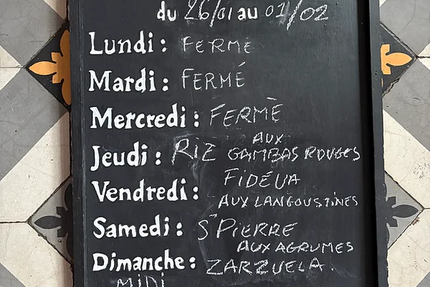 du 26/01 au 01/02
Lundi : FERME
Mardi : FERMÉ
Mercredi : FERMÈ
Jeudi : RIZ AUX
GAMBAS ROUGES
Vendredi : FIDÉUA
AUX LANGOUSTINES
Samedi : St PIERRE
AUX AGRUMES
Dimanche : ZARZUELA.
MIDI